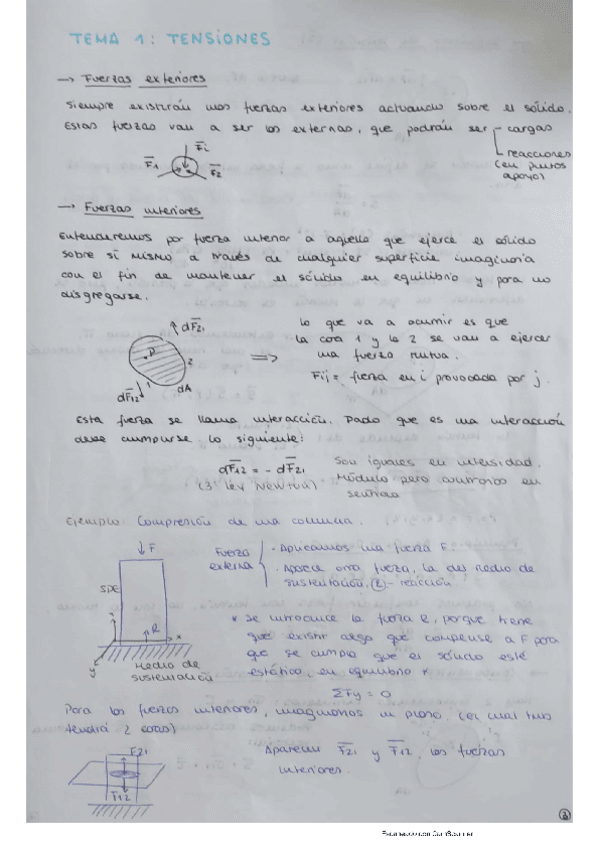 TEMA 1: TENSIONES
→ Fuerzas exteriores
Siempre existirán unas fuerzas exteriores actuando sobre el sólido.
Estas fuerzas van a ser las externas, que podrán ser - cargas
- reacciones
(en puntos
apoyo)
F1
Fi
F2
→ Fuerzas interiores
Entenderemos por fuerza interior a aquello que ejerce el sólido
sobre sí mismo a través de cualquier superficie imaginaria
con el fin de mantener el sólido en equilibrio y para no
disgregarse.
dF21
P
2
1
dA
dF12
=>
lo que va a ocurrir es que
la cara 1 y la 2 se van a ejercer
una fuerza mutua.
Fij = fuerza en i provocada por j.
Esta fuerza se llama interacción. Dado que es una interacción
debe cumplirse lo siguiente:
dF12 = - dF21
(3ª ley Newton)
Son iguales en intensidad.
Módulo pero contrarios en
sentido
Ejemplo: Compresión de una columna.
F
SDE
R
x
y
Medio de
sustentación
Fuerza
externa
- Aplicamos una fuerza F.
- Aparece otra fuerza, la del medio de
sustentación, (R) - reacción
* Se introduce la fuerza R, porque tiene
que existir algo que compense a F para
que se cumpla que el sólido esté
estático, en equilibrio *
ΣFy = 0
Para las fuerzas interiores, imaginamos un plano. (el cual
tendrá 2 caras)
F21
F12
Aparecen F21 y F12, las fuerzas
interiores.